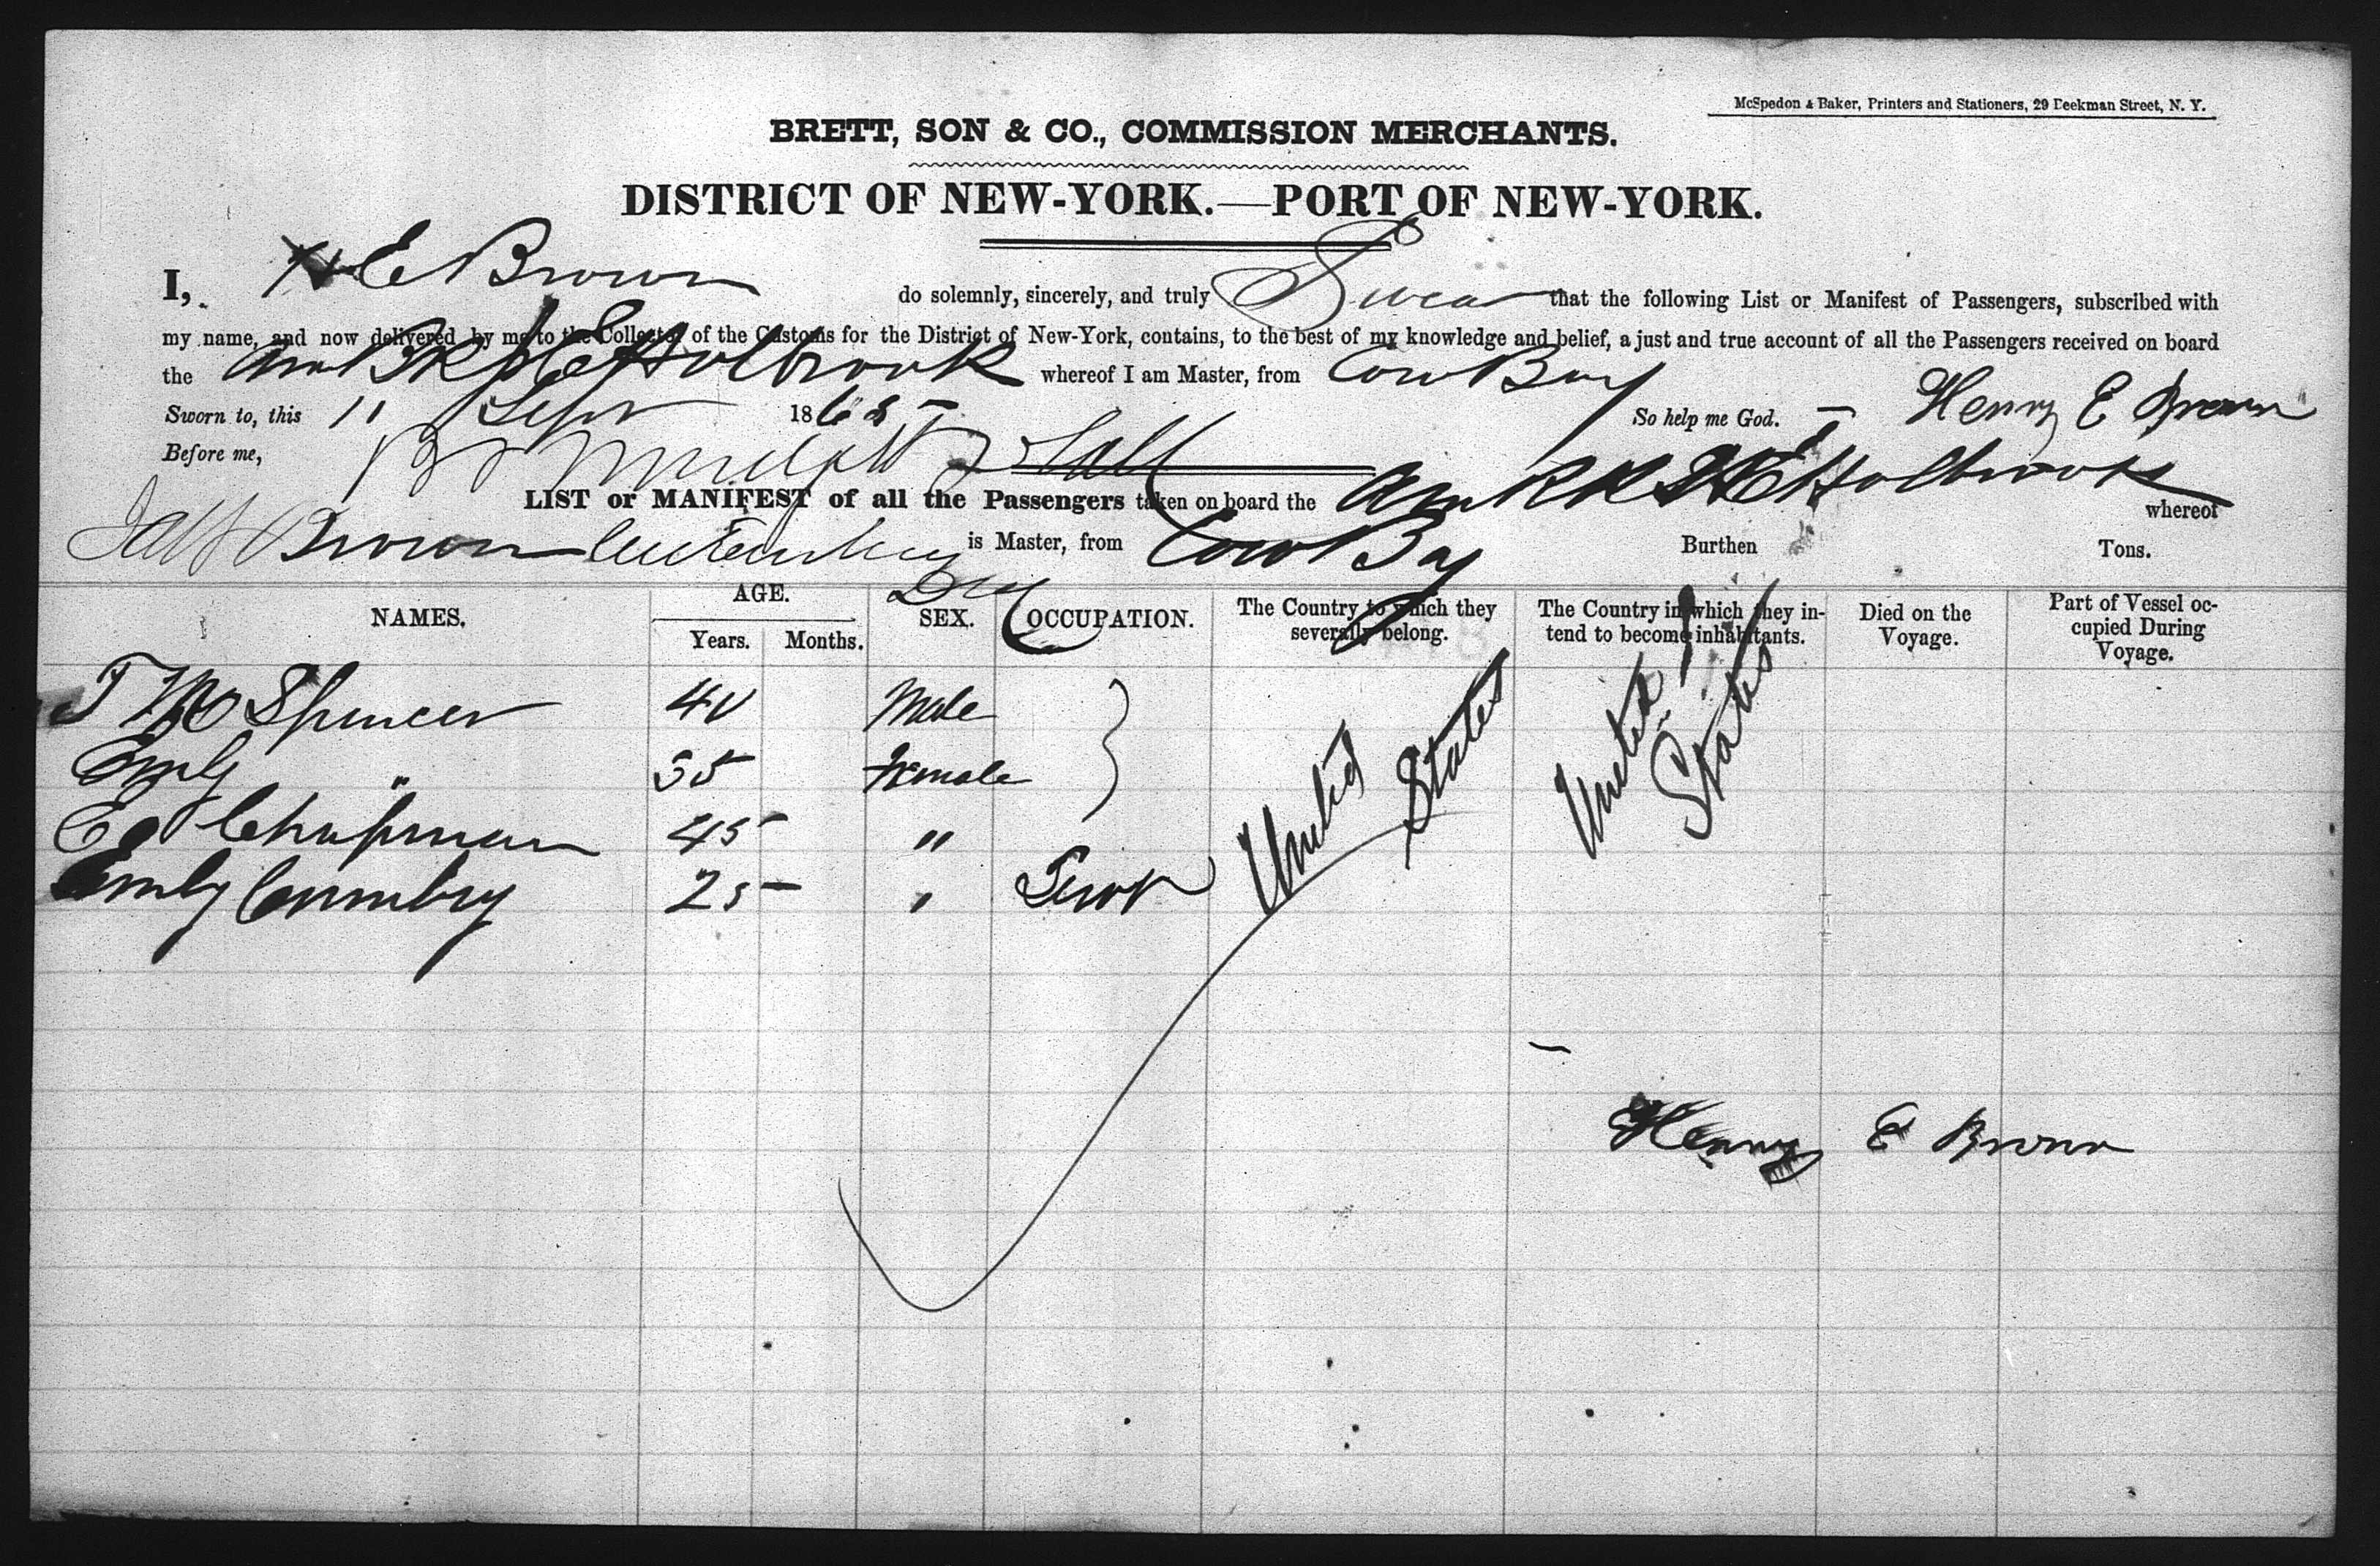 McSpedon & Baker, Printers and Stationers, 29 Beekman Street, N. Y.
BRETT, SON & CO., COMMISSION MERCHANTS.
DISTRICT OF NEW-YORK.—PORT OF NEW-YORK.
I, H E Brown do solemnly, sincerely, and truly Swear that the following List or Manifest of Passengers, subscribed with
my name, and now delivered by me to the Collector of the Customs for the District of New-York, contains, to the best of my knowledge and belief, a just and true account of all the Passengers received on board
the Am Bk Holbrook whereof I am Master, from Cow Bay
Sworn to, this 11 Sept 1865 So help me God. Henry E Brown
Before me,
LIST or MANIFEST of all the Passengers taken on board the Am Bk Holbrook whereof
Brown is Master, from Cow Bay Burthen Tons.
NAMES. AGE. Years. Months. SEX. OCCUPATION. The Country to which they severally belong. The Country in which they intend to become inhabitants. Died on the Voyage. Part of Vessel occupied During Voyage.
Spencer 40 Male United States United States
Emly " 35 Female
Chapman 45 "
Emly 25 "
Henry E Brown